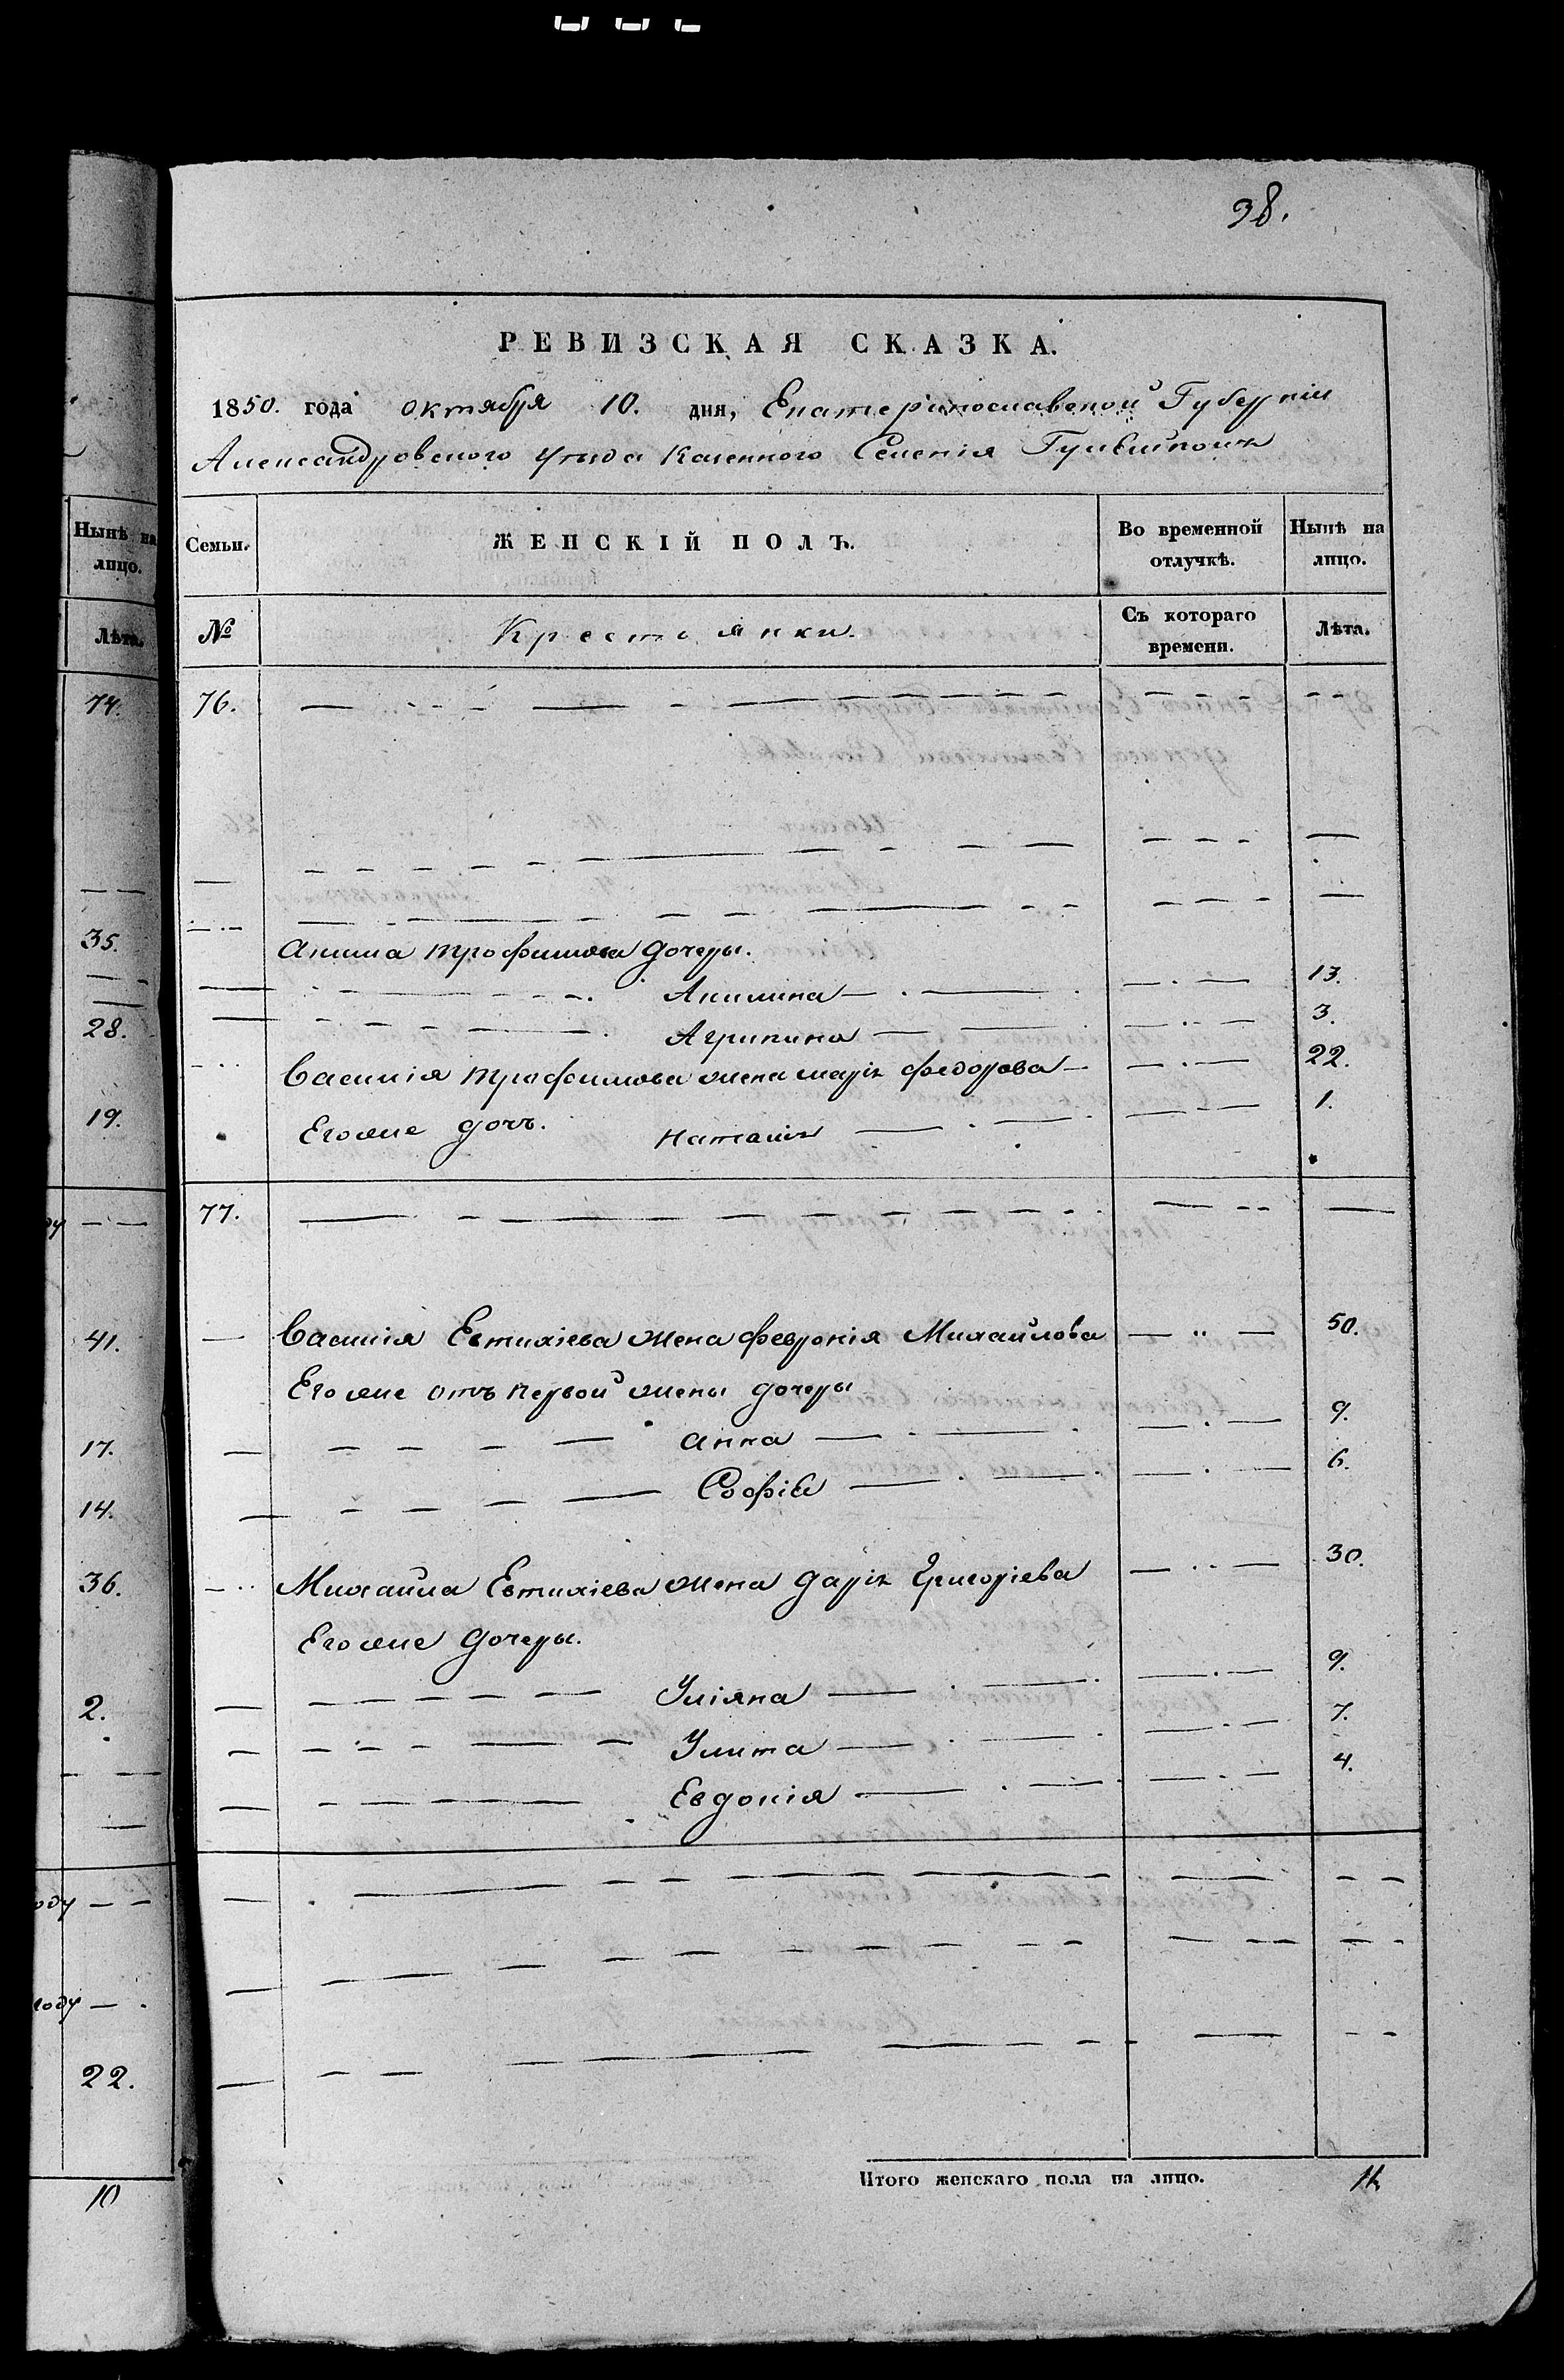 38.
РЕВИЗСКАЯ СКАЗКА.
1850. года октября 10. дня, Екатеринославской Губерніи
Александровского уезда Казенного Селенія
Нынѣ на лицо.
Семьи.
ЖЕНСКІЙ ПОЛЪ.
Во временной отлучкѣ.
Нынѣ на лицо.
Лѣта.
№
Крестьянки.
Съ котораго времени.
Лѣта.
74.
76.
35.
Акима Трофимова дочеры.
Акилина 13.
28.
Агрипина 3.
Василія Трофимова жена марія федорова 22.
19.
Его же дочъ. Наталія 1.
77.
41.
Василія Евтихіева жена февронія Михайлова 50.
Его же отъ первой жены дочеры
17.
Анна 9.
14.
Софія 6.
36.
Михайла Евтихіева жена дарія Григоріева 30.
Его же дочеры.
2.
Уліяна 9.
Улита 7.
Евдокія 4.
оду
году
22.
Итого женскаго пола на лицо.
10